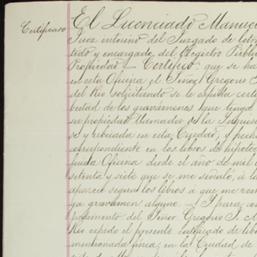 Certificado
El Licenciado Manuel
Juez interino del Juzgado de
tido y encargado del Registro Públi
Propiedad — Certifico que se ha
en esta Oficina el Señor Gregorio
del Rio solicitando se le expida certi
bertad de los gravámenes que tenga
su propiedad llamada de la
y ubicada en esta Ciudad, y
correspondiente en los libros de hipote
esta Oficina desde el año de mil
setenta y siete que se me señaló, á la
aparece segun los libros a que me
ya gravámen alguno. Y para
pedimento del Señor Gregorio S. M
Rio expido el presente certificado de lib
mencionada finca, en la Ciudad de